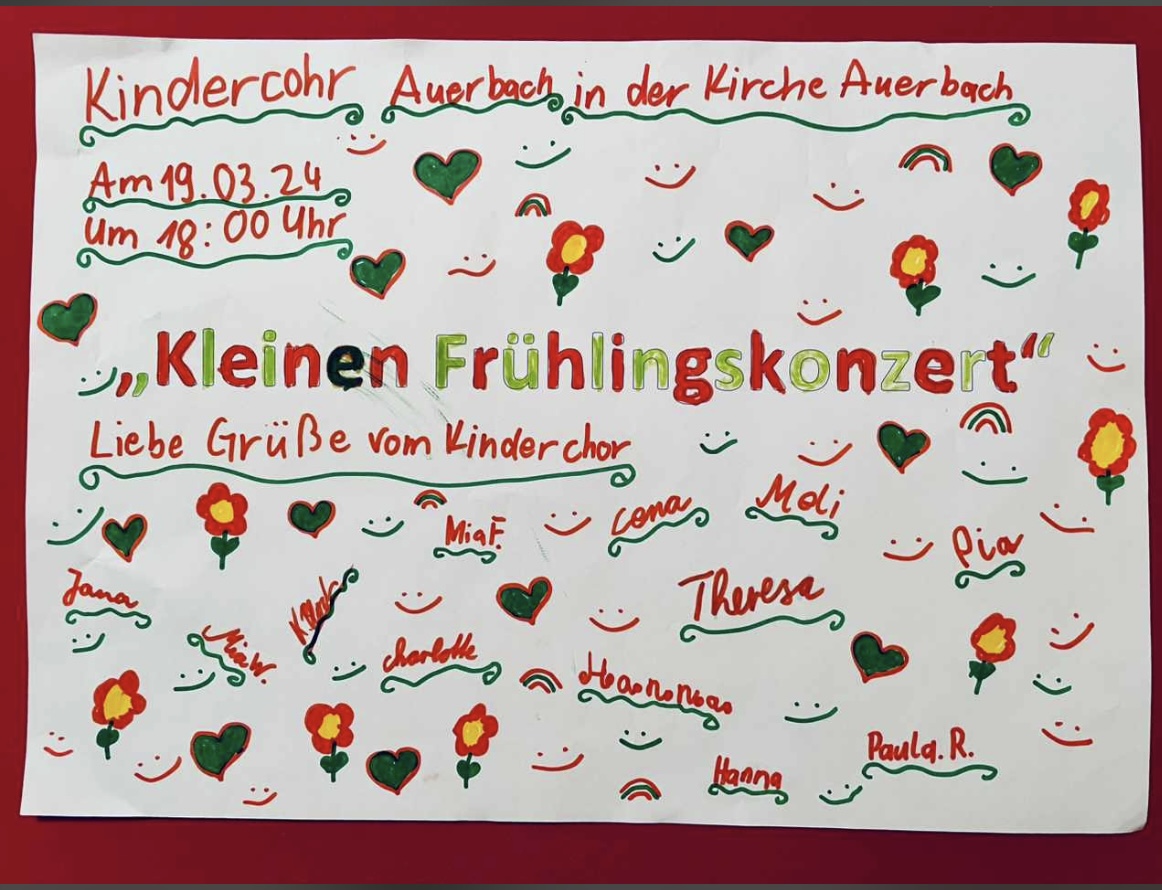 Kindercohr Auerbach in der Kirche Auerbach
Am 19.03.24
um 18:00 Uhr
„Kleinen Frühlingskonzert“
Liebe Grüße vom Kinderchor
Mia F.
Lena
Meli
Pia
Jana
Theresa
Mia W.
Charlotte
Hanna
Paula. R.